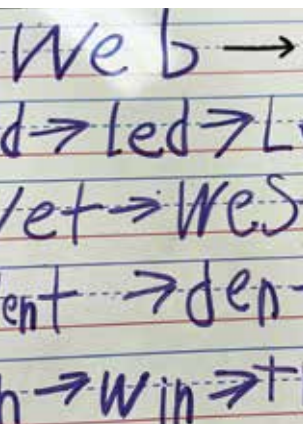 Web →
d → led → L
et → Wes
ent → den
→ win →